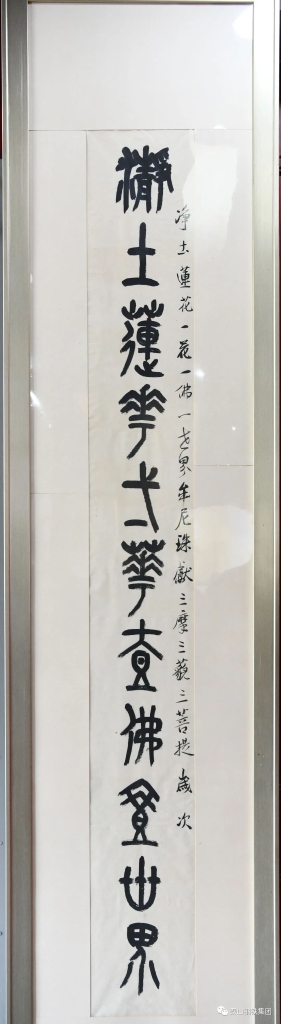 净土蓮花一花一佛一世界牟尼珠獻三摩三藐三菩提歲次
瀞土蓮華弌華壹佛壹世界